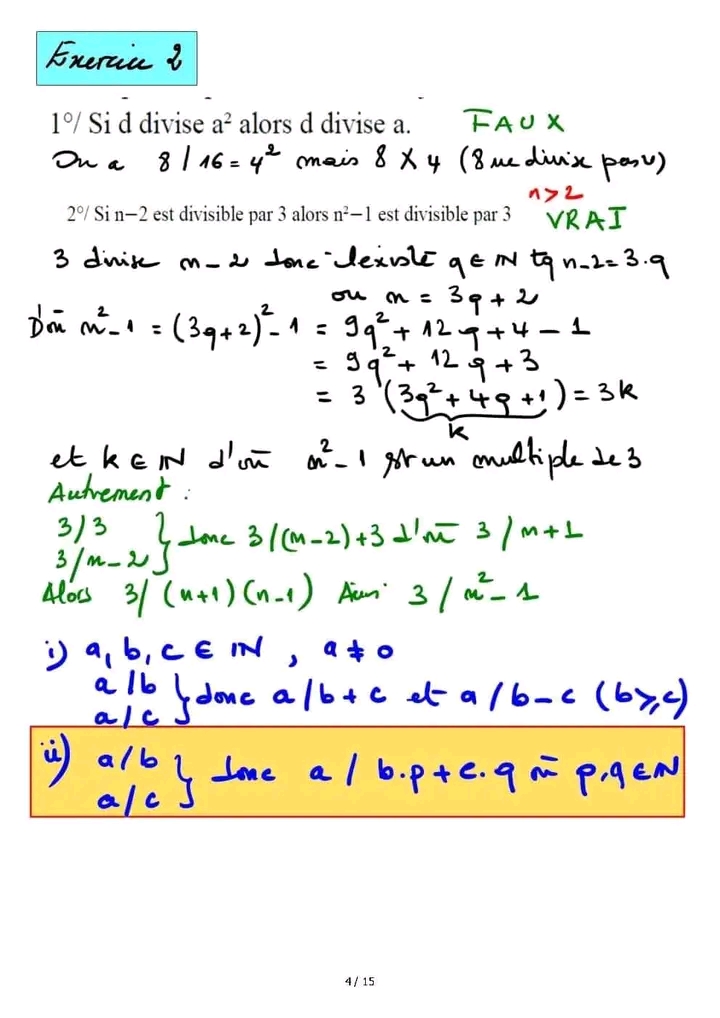 Exercice 2
1°/ Si d divise a² alors d divise a. FAUX
On a 8 / 16 = 4² mais 8 ∤ 4 (8 ne divise pas 4)
n > 2
2°/ Si n−2 est divisible par 3 alors n²−1 est divisible par 3 VRAI
3 divise n-2 donc il existe q ∈ ℕ tq n-2 = 3.q
ou n = 3q + 2
D'où n² - 1 = (3q+2)² - 1 = 9q² + 12q + 4 - 1
= 9q² + 12q + 3
= 3 (3q² + 4q + 1) = 3k
k
et k ∈ ℕ d'où n² - 1 est un multiple de 3
Autrement :
3/3
3/n-2 } donc 3/(n-2)+3 d'où 3/n+1
Alors 3/(n+1)(n-1) Ainsi 3/n²-1
i) a, b, c ∈ ℕ, a ≠ 0
a/b
a/c } donc a/b+c et a/b-c (b⩾c)
ii) a/b
a/c } donc a / b.p + c.q où p,q ∈ ℕ
4 / 15